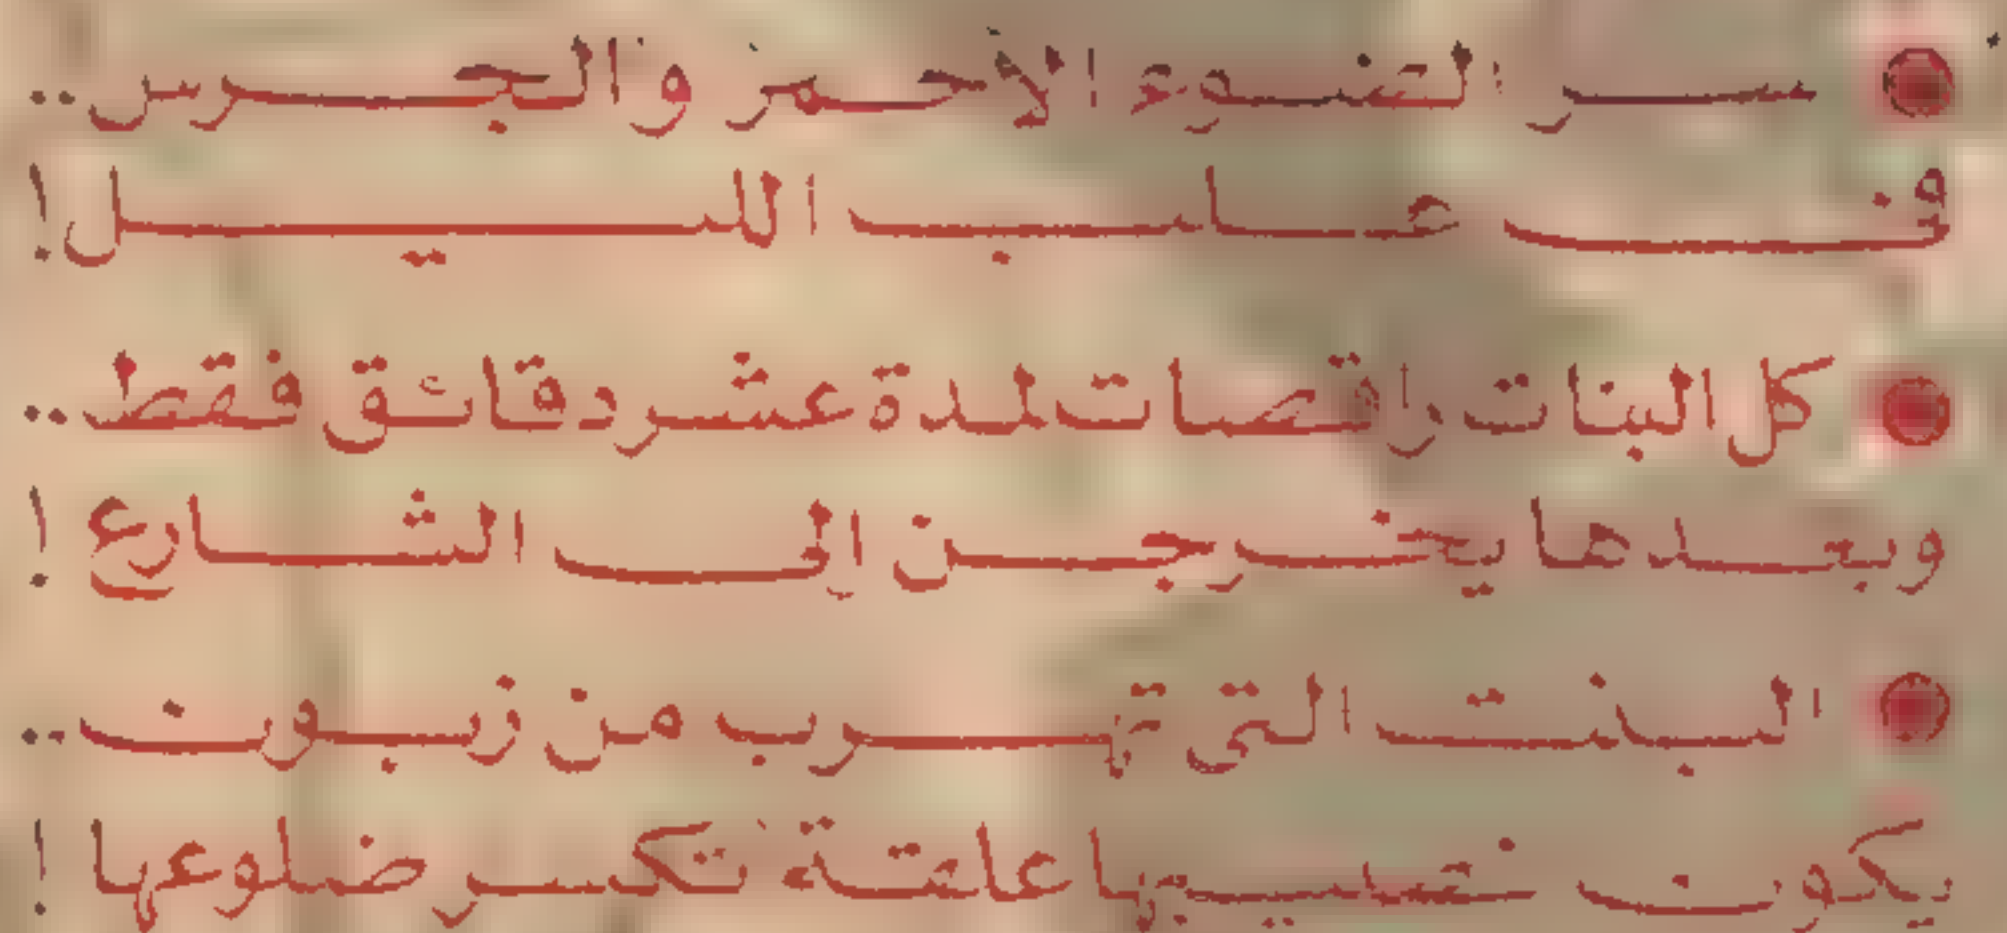 ● سر الضوء الاحمر والجرس ..
فى علب الليل !
● كل البنات راقصات لمدة عشر دقائق فقط ..
وبعدها يخرجن إلى الشارع !
● البنت التى تهرب من زبون ..
يكون نصيبها علقة تكسر ضلوعها !